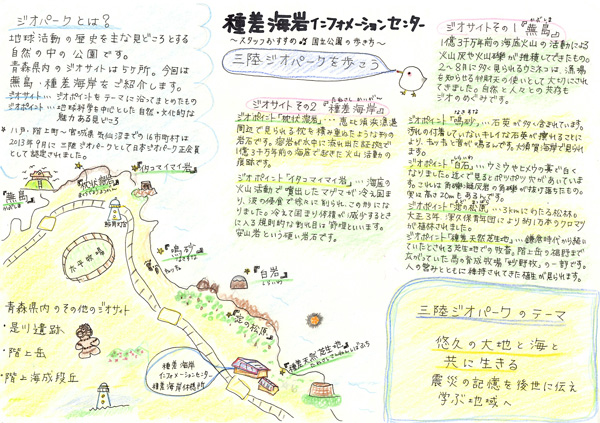 ジオパークとは？
地球活動の歴史を主な見どころとする
自然の中の公園です。
青森県内のジオサイトは5ケ所。今回は
蕪島・種差海岸をご紹介します。
ジオサイト…ジオポイントをテーマに沿ってまとめたもの
ジオポイント…地球科学を中心とした自然・文化的な
魅力ある見どころ
八戸・階上町〜宮城県気仙沼までの16市町村は
2013年9月に三陸ジオパークとして日本ジオパーク正会員
として認定されました。
種差海岸インフォメーションセンター
〜スタッフおすすめ 国立公園の歩き方〜
三陸ジオパークを歩こう
ジオサイトその1『蕪島』
1億3千万年前の海底火山の活動による
火山灰や火山礫が堆積してできたもの。
2〜8月に多く見られるウミネコは、漁場
を知らせる弁財天の使いとして大切にされ
てきました。自然と人々との共存も
ジオのめぐみです。
ジオサイト その2『種差海岸』
ジオポイント『枕状溶岩』…恵比須浜漁港
周辺で見られる枕を積み重ねたような形の
岩石です。溶岩が水中に流れ出た証拠で
1億3千万年前の海底で起きた火山活動の
痕跡です。
ジオポイント『イタコマイマイ岩』…海底の
火山活動で噴出したマグマが冷え固ま
り、波の侵食で徐々に削られこの形にな
りました。冷えて固まり体積が減少するとき
に入る規則的な割れ目は節理といいます。
安山岩という硬い岩石です。
ジオポイント『鳴砂』…石英が多く含まれています。
汚れの付着していないキレイな石英が擦れることに
より、キュッキュッと音が鳴るんです。大須賀海岸で見ら
れます。
ジオポイント『白岩』…ウミウやヒメウの糞で白く
なりました。近くで見るとポツポツ穴があいていま
す。
ジオポイント『淀の松原』…3kmにわたる松林。
大正3年、深久保青年団により約1万本のクロマツ
が植林されました。
ジオポイント『種差天然芝生地』…鎌倉時代から続い
ていたとされる芝生地での牧畜。階上岳の裾野まで
広がっていた馬の育成牧場「妙野牧」の一部です。
人の営みとともに維持されてきた植生が見られます。
『蕪島』
『枕状溶岩』
『イタコマイマイ岩』
鮫角灯台
太平牧場
『鳴砂』
『白岩』
しらいわ
『淀の松原』
『種差天然芝生地』
たねさしてんねんしばふち
種差海岸
インフォメーションセンター
種差海岸休憩所
青森県内のその他のジオサイト
・是川遺跡
・階上岳
・階上海成段丘
三陸ジオパークのテーマ
悠久の大地と海と
共に生きる
震災の記憶を後世に伝え
学ぶ地域へ